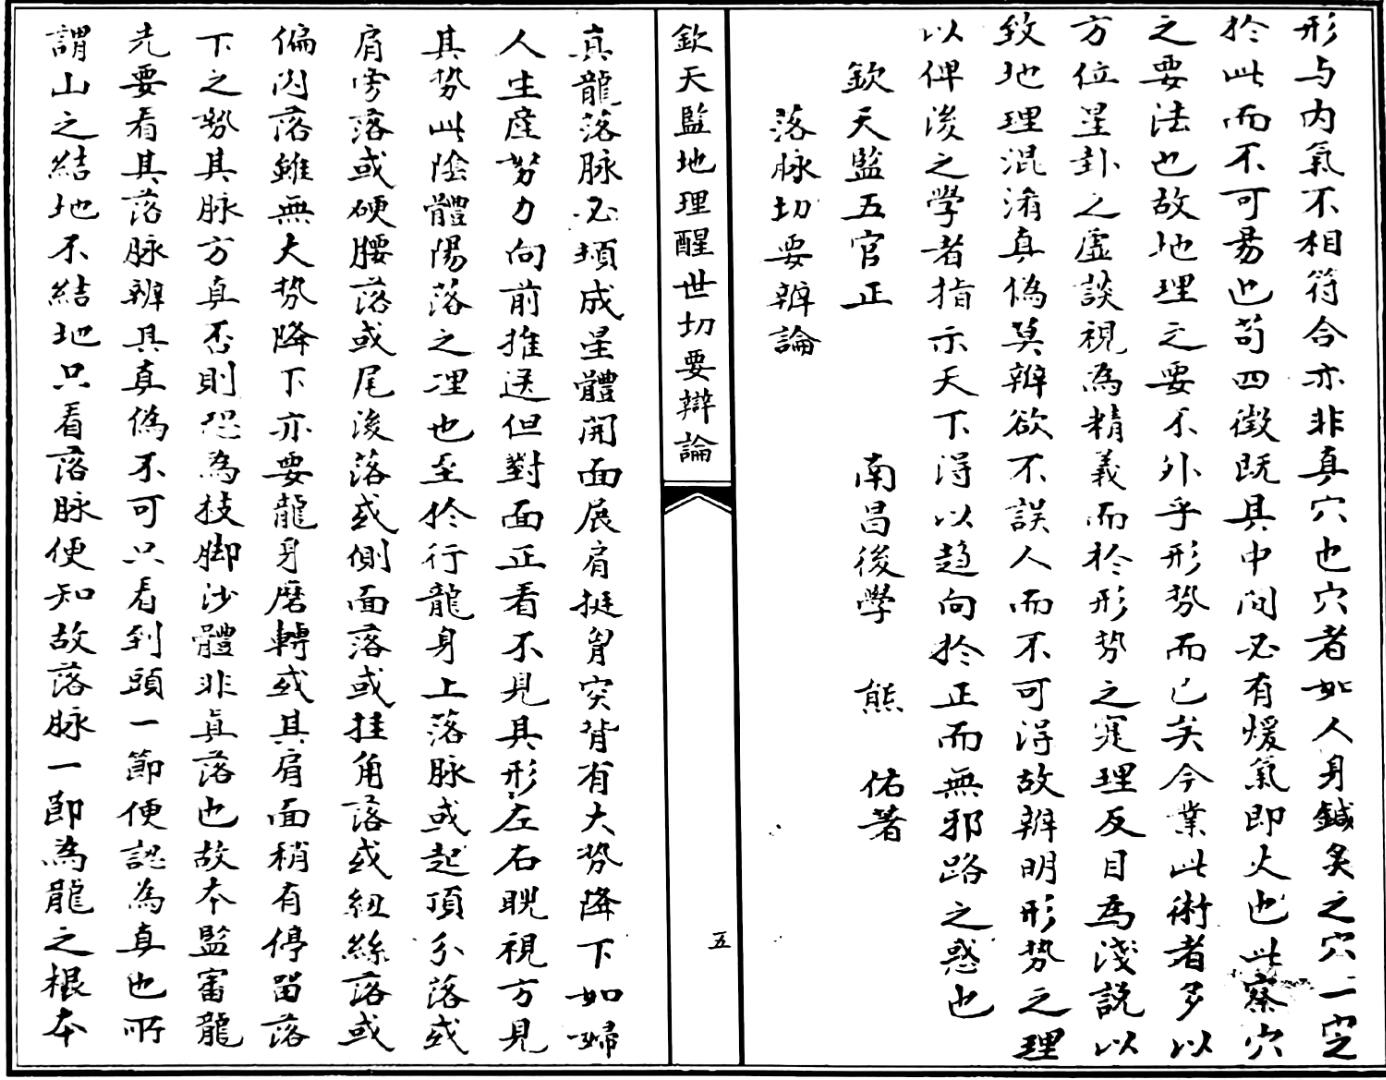 形与内氣不相符合亦非真穴也穴者如人身鍼灸之穴一定
於此而不可易也苟四徵既具中间必有煖氣即火也此察穴
之要法也故地理之要不外乎形势而已矣今業此術者多以
方位星卦之虚談視為精義而於形势之窕理反目為淺説以
致地理混淆真偽莫辨欲不誤人而不可得故辨明形势之理
以俾後之學者指示天下得以趋向於正而無邪路之惑也
欽天監五官正　南昌後學　熊　佑著
落脉切要辨論
欽天監地理醒世切要辯論
五
真龍落脉必須成星體開面展肩挺胷突背有大势降下如婦
人生産努力向前推送但對面正看不見其形左右睨視方見
其势此陰體陽落之理也至於行龍身上落脉或起頂分落或
肩旁落或硬腰落或尾後落或側面落或挂角落或紐絲落或
偏闪落雖無大势降下亦要龍身磨轉或其肩面稍有停留落
下之势其脉方真否則恐為技脚沙體非真落也故本監審龍
先要看其落脉辨具真偽不可只看到頭一節便認為真也所
謂山之結地不結地只看落脉便知故落脉一節為龍之根本